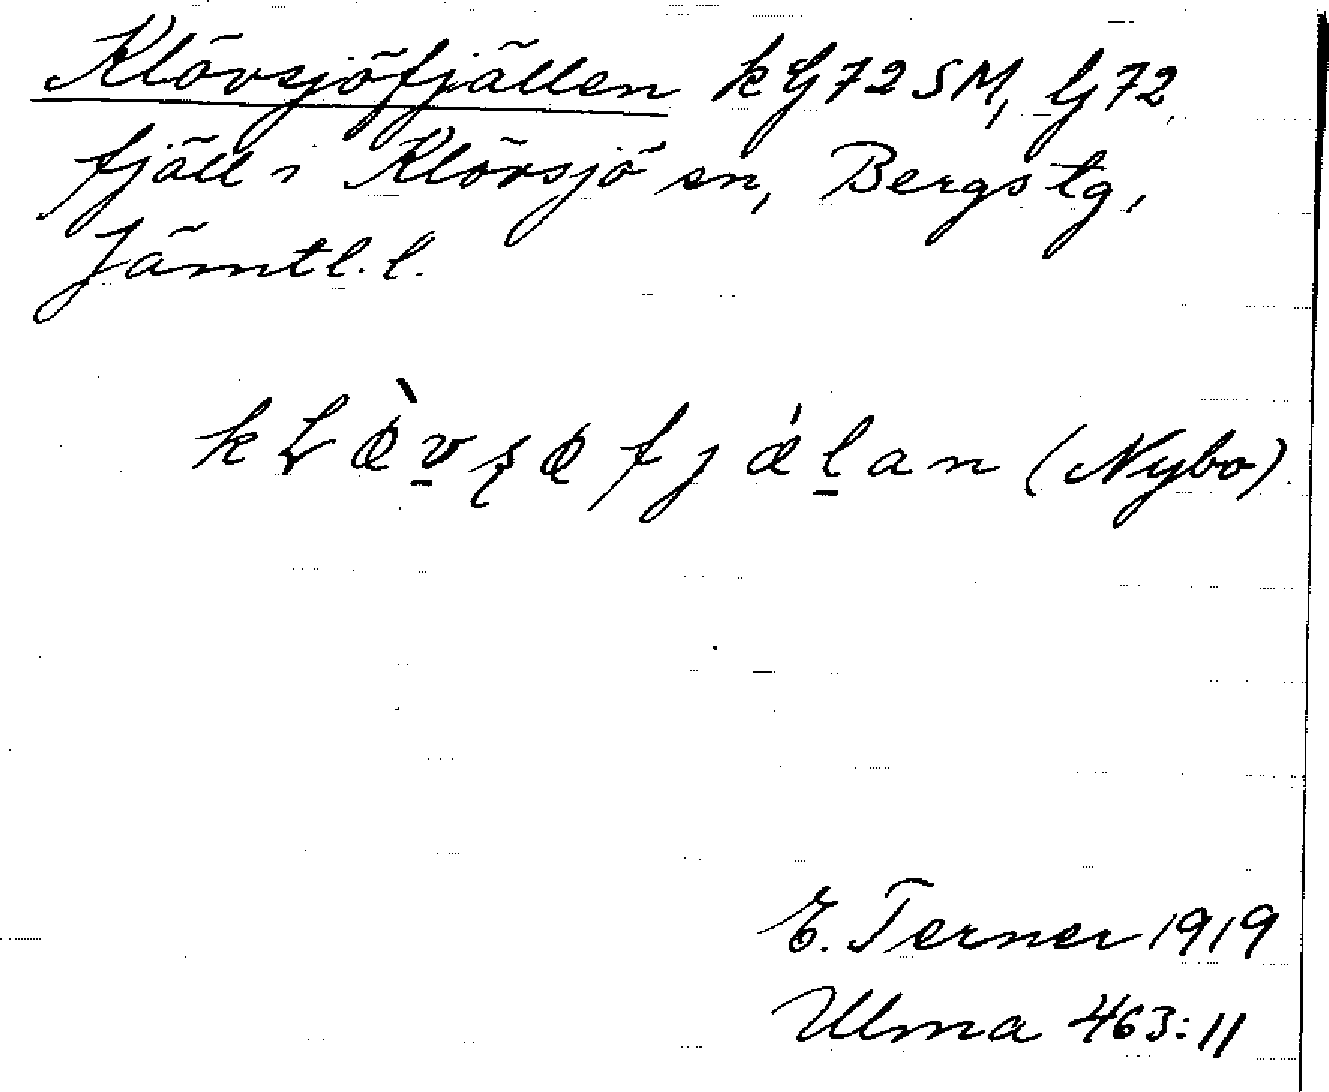 Klövsjöfjällen kG72SM, G72
fjäll i Klövsjö sn, Bergs tg,
Jämtl. l.
(Nybo)
E. Terner 1919
Ulma 463:11